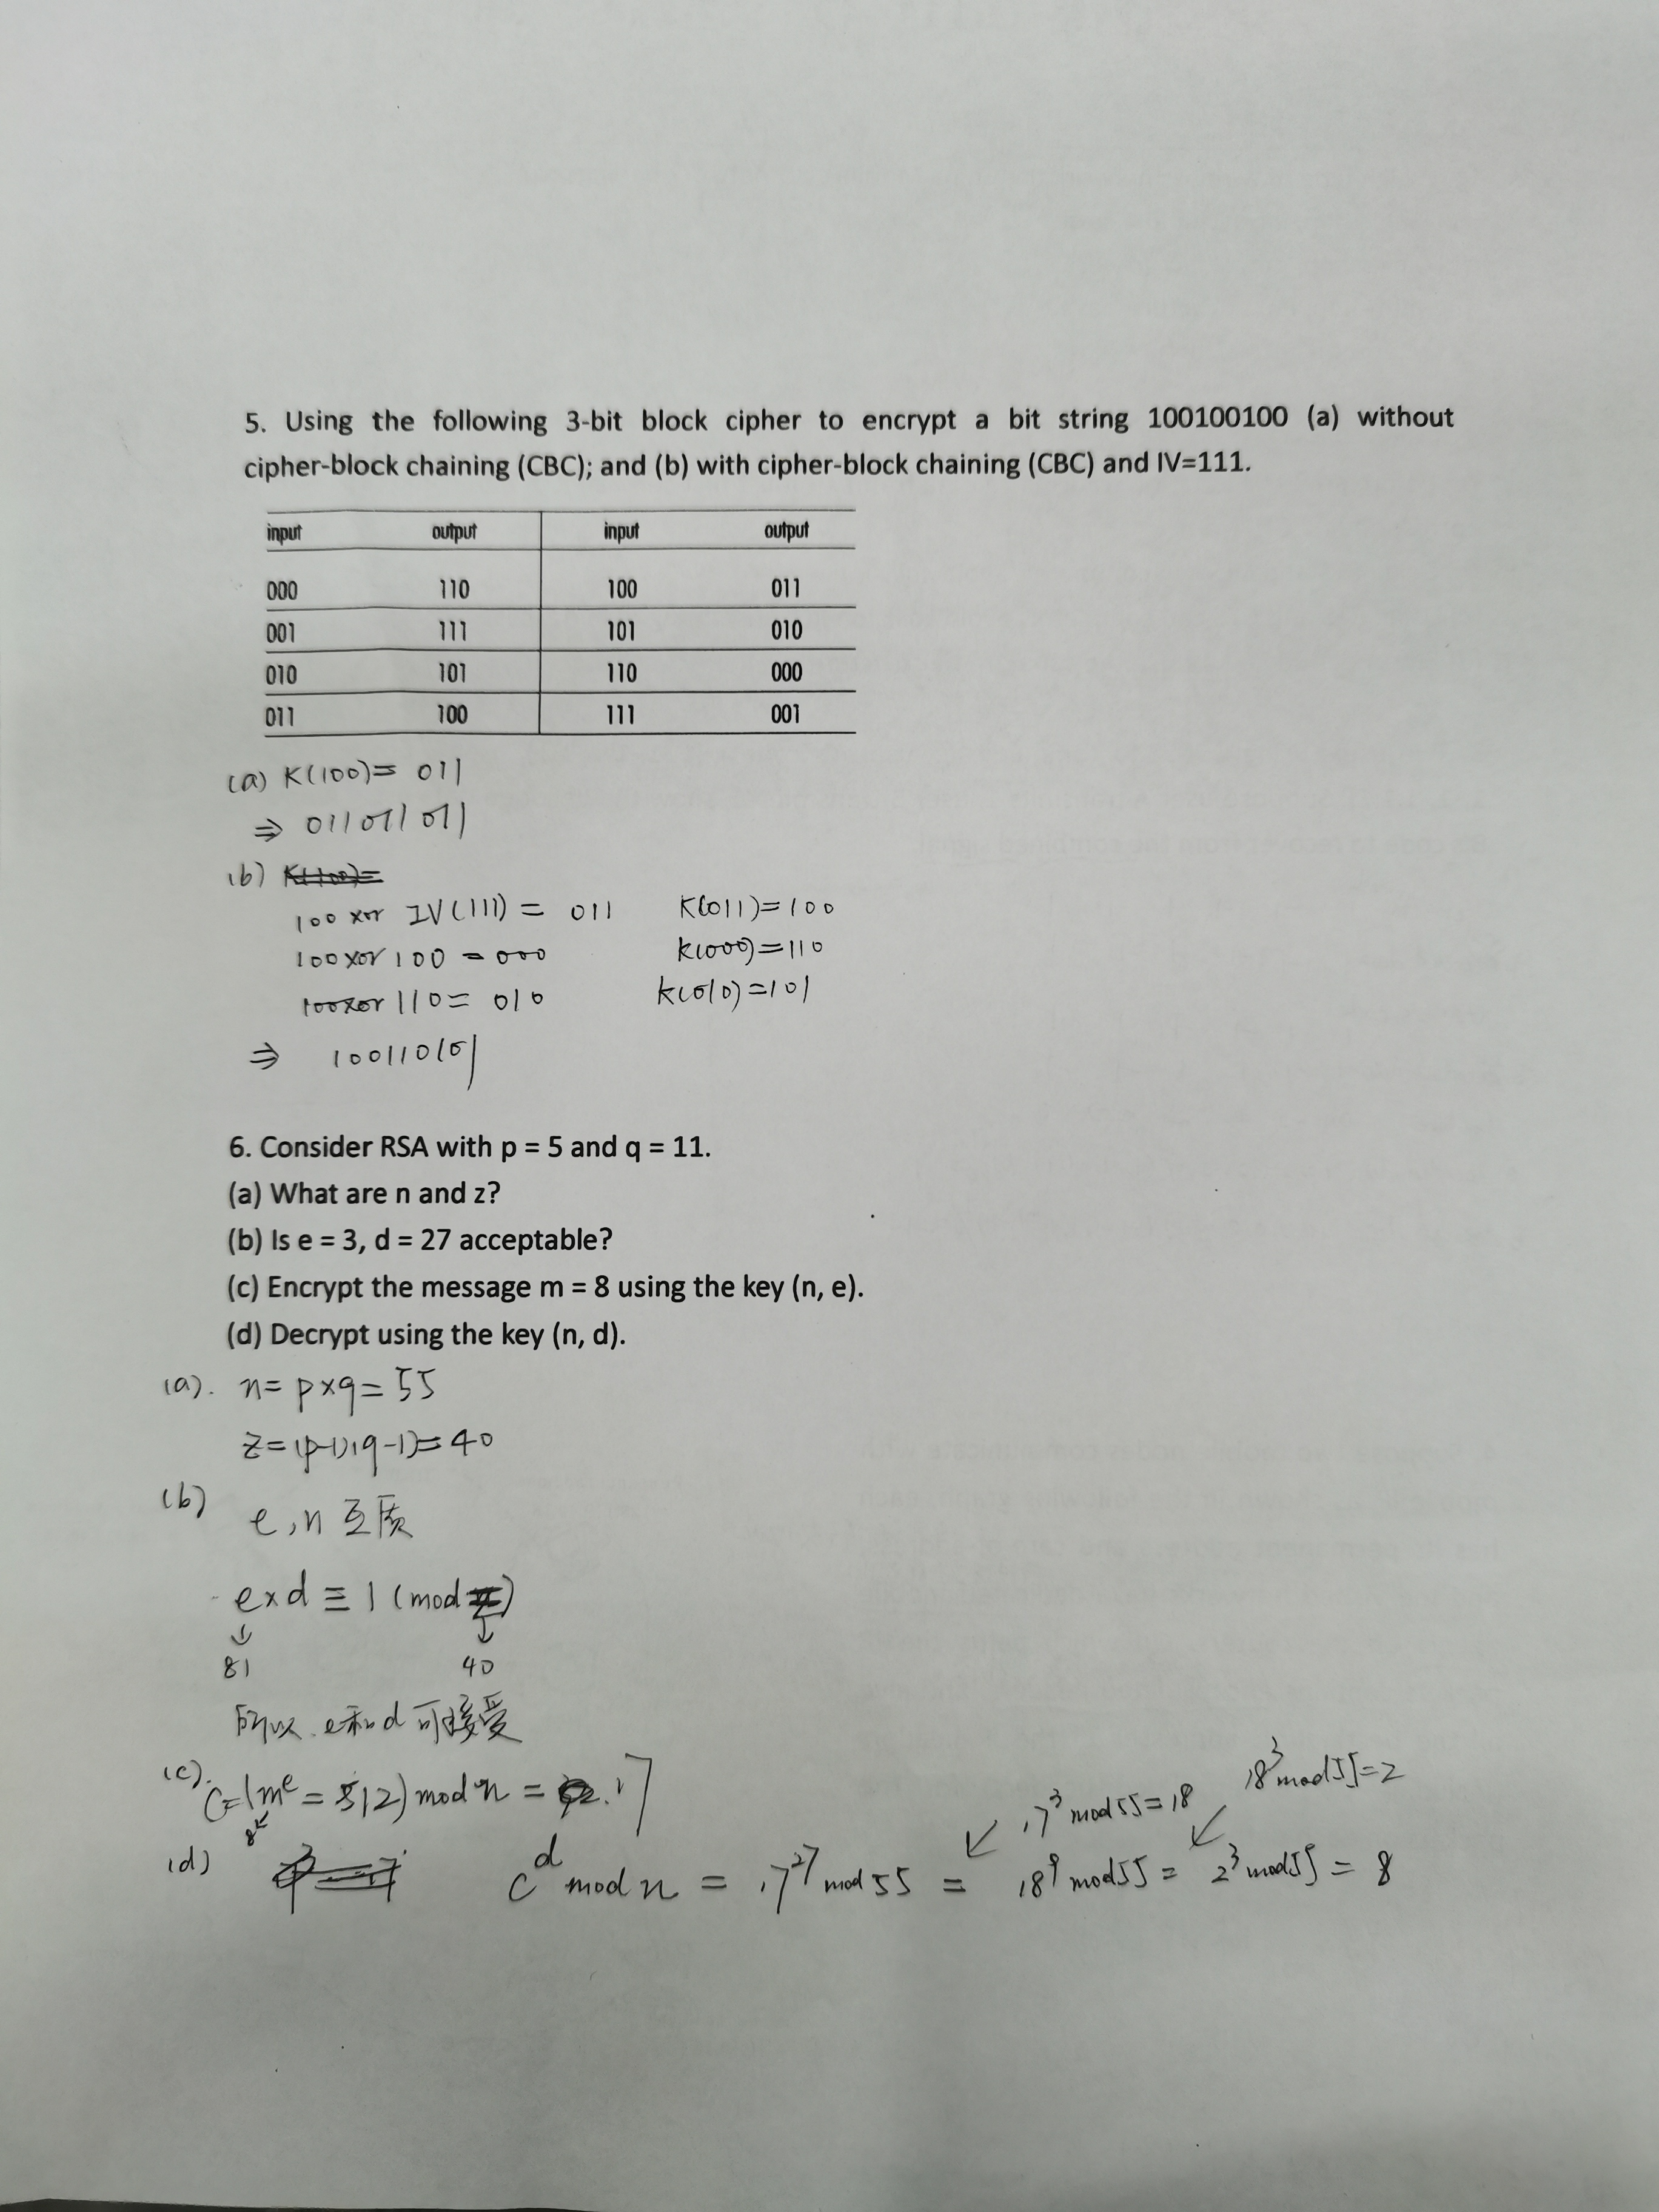 5. Using the following 3-bit block cipher to encrypt a bit string 100100100 (a) without
cipher-block chaining (CBC); and (b) with cipher-block chaining (CBC) and IV=111.
input output input output
000 110 100 011
001 111 101 010
010 101 110 000
011 100 111 001
(a) K(100)= 011
⇒ 011011011
(b) K(100)=
100 xor IV(111) = 011 K(011)=100
100 xor 100 = 000 K(000)=110
100xor 110= 010 K(010)=101
⇒ 100110101
6. Consider RSA with p = 5 and q = 11.
(a) What are n and z?
(b) Is e = 3, d = 27 acceptable?
(c) Encrypt the message m = 8 using the key (n, e).
(d) Decrypt using the key (n, d).
(a). n= p×q= 55
z=(p-1)(q-1)=40
(b)
e,n 互质
e×d ≡ 1 (mod z)
↓ ↓
81 40
所以 e和d 可接受
(c). C=(m^e = 512) mod n = 17
8
17³ mod 55=18 18³ mod 55=2
(d) c^d mod n = 17^27 mod 55 = 18^9 mod 55 = 2³ mod 55 = 8